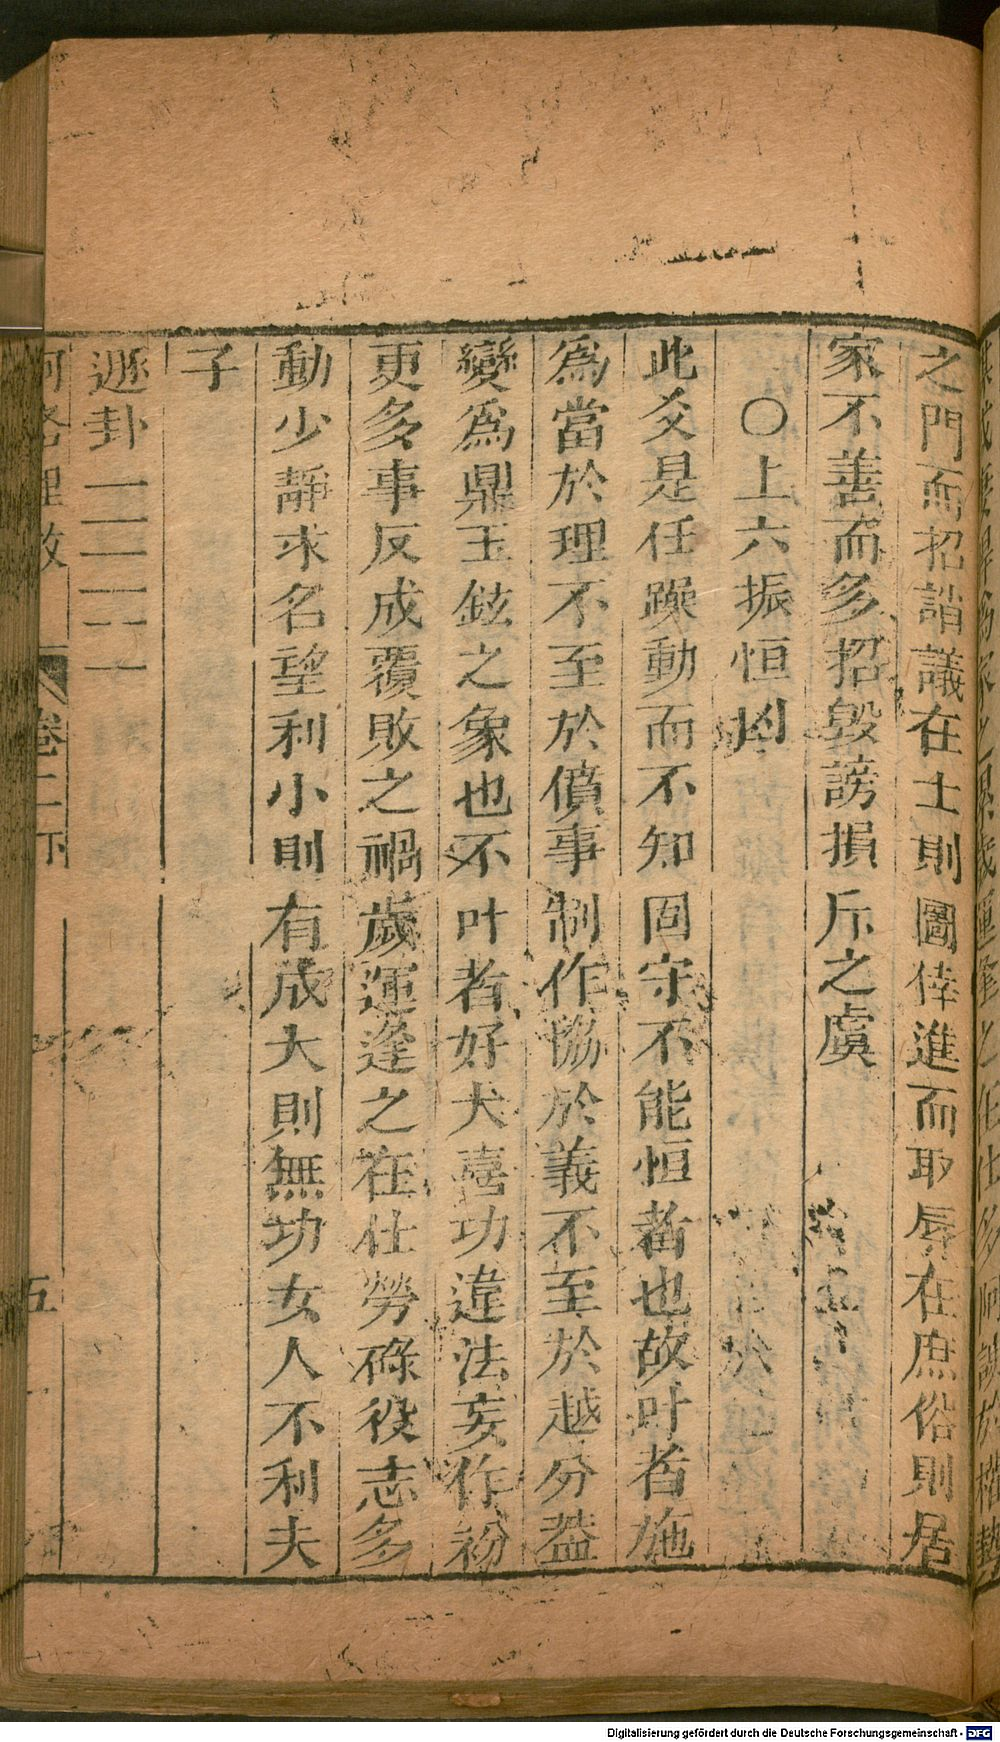 之門而招誚議在士則圖倖進而取辱在庶俗則居
家不善而多招毀謗損斥之虞
○上六振恒凶
此爻是任躁動而不知固守不能恒者也故叶者施
爲當於理不至於僨事制作協於義不至於越分蓋
變爲鼎玉鉉之象也不叶者好大喜功違法妄作紛
更多事反成覆敗之禍歲運逢之在仕勞碌役志多
動少靜求名望利小則有成大則無功女人不利夫
子
遯卦
河洛理数 卷二下 五
Digitalisierung gefördert durch die Deutsche Forschungsgemeinschaft - DFG